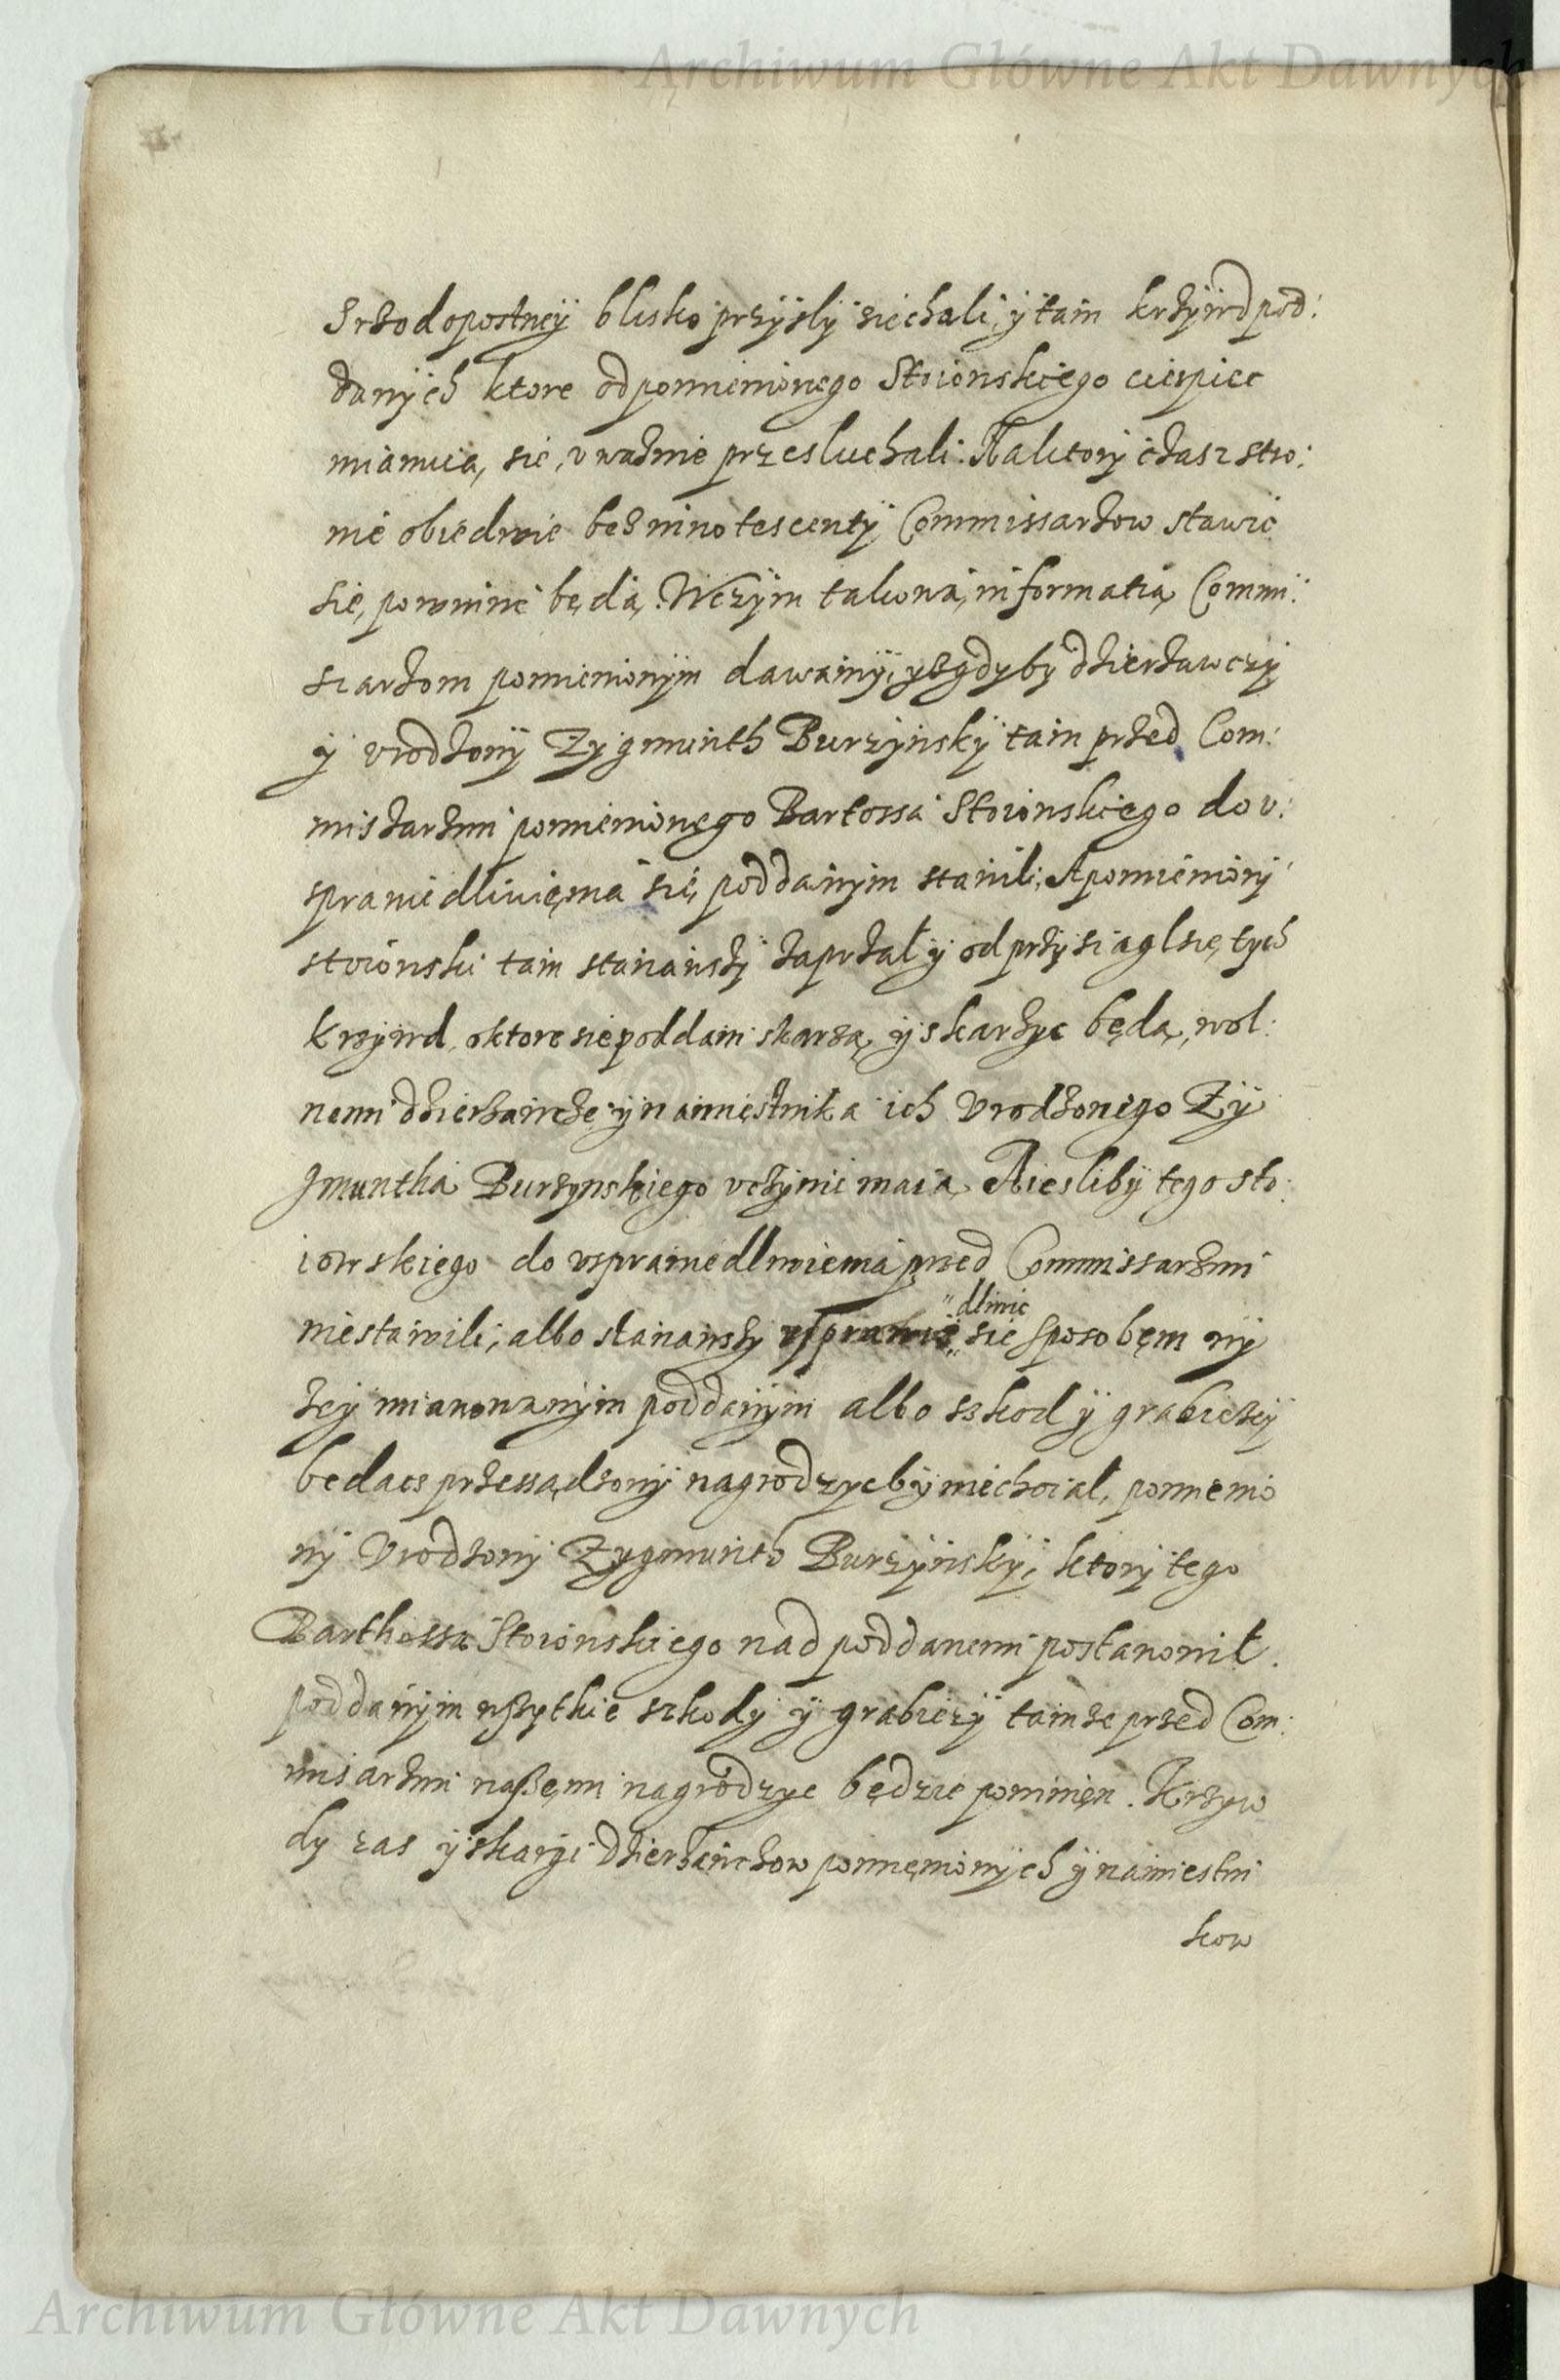 Archiwum Główne Akt Dawnych
Srzodopostney blisko przyszly ziechali, y tam krzywd pod:
danych ktore od pomienionego Stoionskiego cierpiec
mianuią się, uwaznie przesluchali. Na ktory czas z stro:
nie obiedwie bez innotescenty Commissarzow stawic
się powinne będą. W czym takową informatią Commi:
siarzom pomienionym dawamy, yz gdyby dzierzawczy
y vrodzony Zygmunth Burzynsky tam przed Com:
miszarzmi pomienionego Bartossa Stoionskiego do v:
sprawiedliwięnia się poddanym stawili, A pomieniony
stoionski tam stanąwszy zaprzał y odprzysiągl się tych
krzywd, o ktore się poddani skarzą y skarzyc będą, wol:
nemi dzierzawcze y namięstnika ich Vrodzonego Zy
gmuntha Burzynskiego vczynic maią, A iesliby tego sto:
iowskiego do vsprawiedliwienia przed Commissarzmi
niestawili, albo stanąwszy vsprawie
dliwic
się sposobęm wy
zey mianowanym poddanym albo szkod y grabiezy
bedacz przessądzony nagrodzycby niechcial, pomienio
ny Vrodzony Zygmunth Burzynsky, ktory tego
Barthossa Stoionskiego nad poddanemi postanowil.
poddanym wszytkie szkody y grabiezy tamze przed Com:
misarzmi naszęmi nagrodzyc będzie powinięn. Krzyw
dy zas y skargi Dzierzawczow pomięnionych y namiestni
kow
Archiwum Główne Akt Dawnych